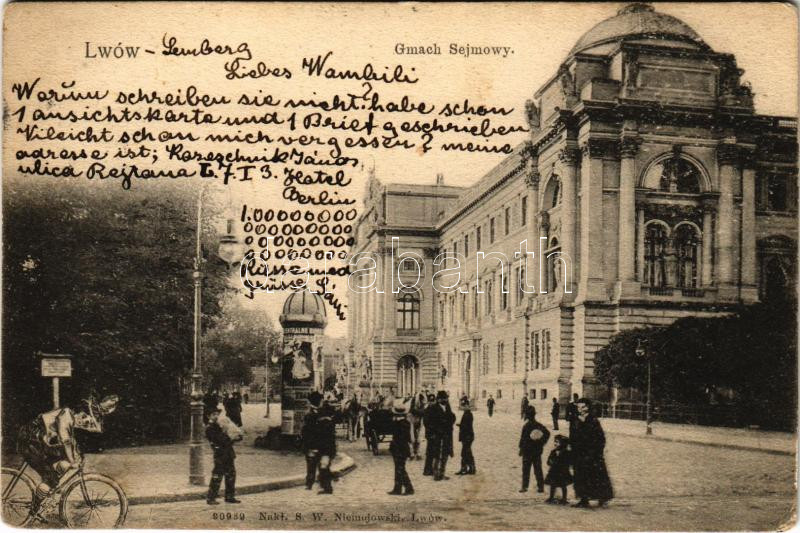 Lwów - Lemberg
Gmach Sejmowy.
Liebes Wambili
Warum schreiben sie nicht? habe schon
1 ansichtskarte und 1 Brief geschrieben
Vileicht schon mich vergessen? meine
adresse ist; Kareschnik János
ulica Rejtana L. 7 I 3. Hotel
Berlin
1.00000000
000000000
000000000
00000000
Küsse und
grüsse
darabanth
20989 Nakł. S. W. Niemojowski, Lwów.